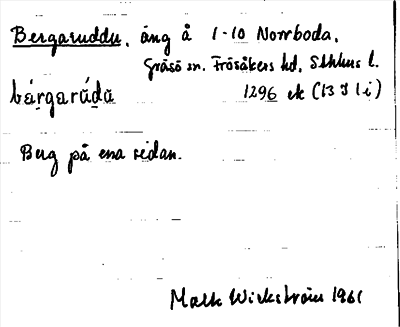 Bergaruddu, äng å 1-10 Norrboda,
Gräsö sn. Frösåkers hd, Sthlms l.
bärgarúdu 1296 ek (13 I 1 i)
Berg på ena sidan.
Mats Wickström 1961